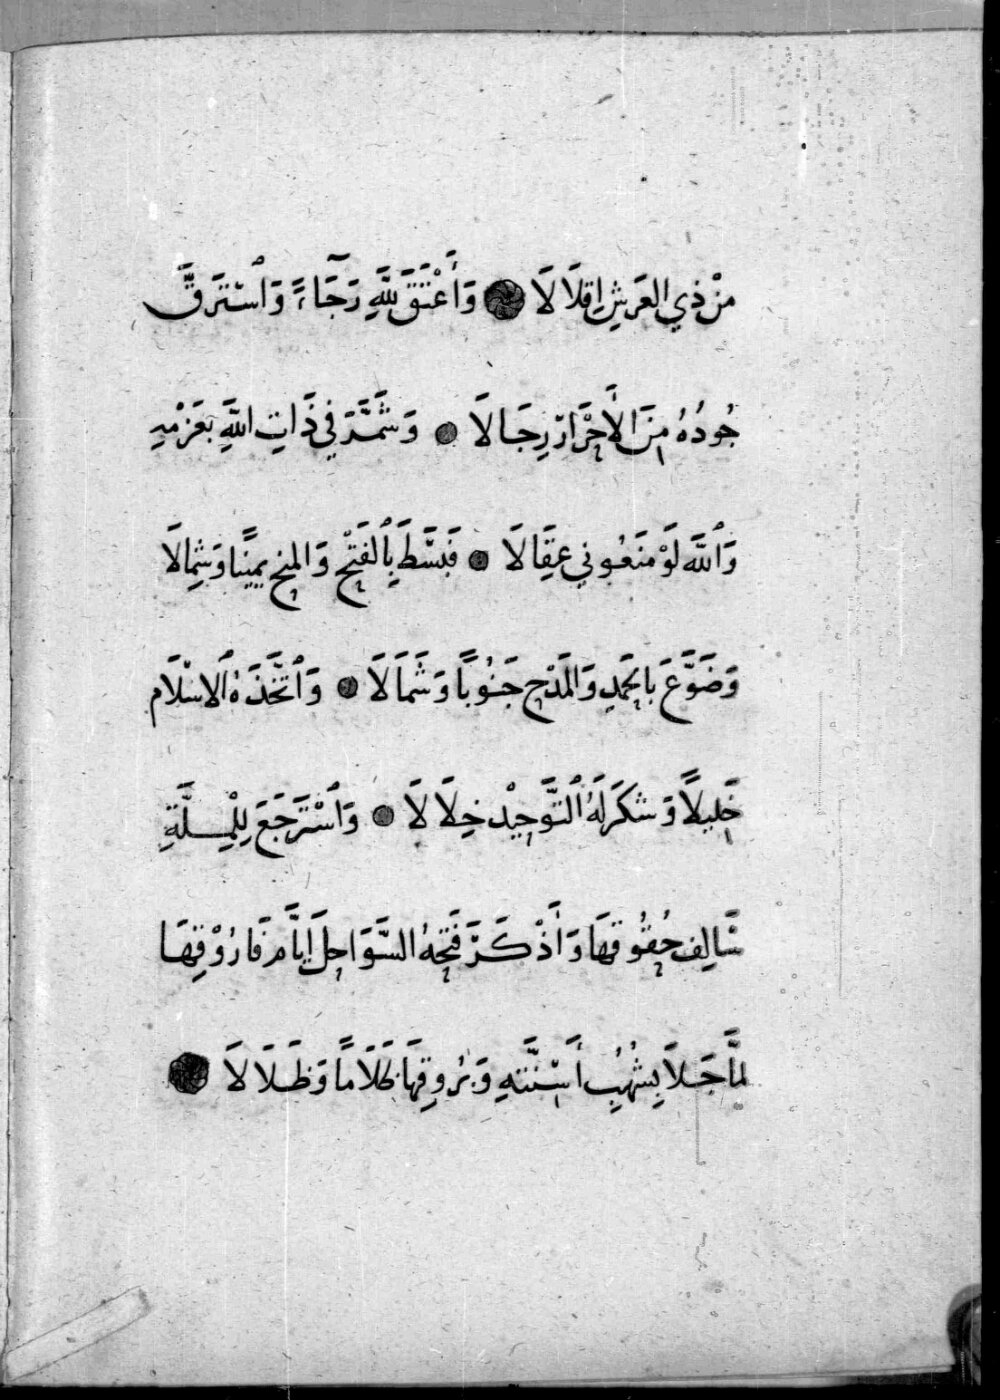 مِنْ ذِي العَرْشِ اِقلَالَا وَأَعْتَقَ لِلَّهِ رَجَآءً وَٱسْتَرَقَّ
جُودُهُ مِنَ الأَحْرَارِ رِجَالَا وَشَمَّرَ فِي ذَاتِ اللَّهِ بعَزْمِهِ
وَٱللَّهِ لَوْ مَنَعُونِي عِقَالَا فَبَسَّطَ بِٱلفَتْحِ وَالمنحِ يَمِينًا وَشِمِالَا
وَضَوَّعَ بالحَمدِ وَالمَدْحِ جَنُوبًا وَشَمَالَا وَٱتَّخَذَهُ ٱلاِسْلَام
خَلِيلًا وَشكَرَ لَهُ ٱلتَّوَحِيْد خِلَالَا وَٱسْتَرجَعَ لِلْمِلَّةِ
سَالِفَ حُقُوقِهَا وَأَذْكَرَ فَتحِهُ السَّوَاحِلَ اِيَّامَ فَارُوْقِهَا
لمَّا جَلَا بِشُهُبِ أَسِنَّتِهِ وَبُرُوقِهَا ظَلَامًا وَظَلَالَا